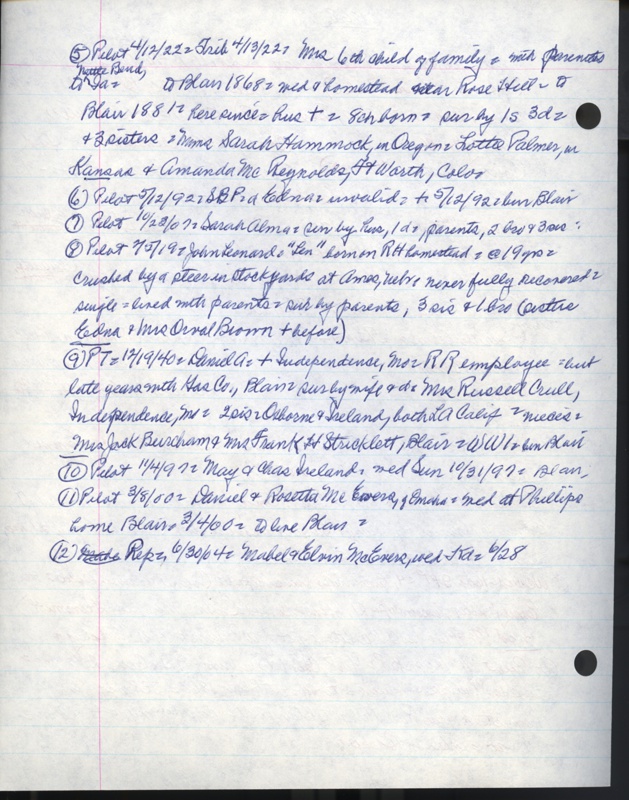 ⑤ Pilot 4/12/22 = Trib 4/13/22 = Mrs 6th child of family = with parents
to Ia = to Blair 1868 = wed & homestead near Rose Hill = to
Blair 1881 = here since = hus + = 8 ch born = sur by 1s 3d =
& 3 sisters = Mmes Sarah Hammock, in Oregon = Lotta Palmer, in
Kansas & Amanda McReynolds, Ft Worth, Colo =
⑥ Pilot 5/12/92 = SBP = d Edna = invalid = + 5/12/92 = bur Blair
⑦ Pilot 10/23/07 = Sarah Alma = sur by hus, 1d =, parents, 2 bro & 3 sis =
⑧ Pilot 7/5/19 = John Leonard = "Len" born on RH homestead = @ 19 yrs =
crushed by a steer in stockyards at Ames, Nebr = never fully recovered =
single = lived with parents = sur by parents, 3 sis & 1 bro (sisters
Edna & Mrs Orval Brown + before)
⑨ PT = 12/19/40 = Daniel A = + Independence, Mo = RR employee = but
late years with Gas Co., Blair = sur by wife & d = Mrs Russell Crull,
Independence, Mo = 2 sis = Osborne & Ireland, both LA Calif = nieces =
Mrs Jack Burcham & Mrs Frank H Stricklett, Blair = WW1 = bur Blair
⑩ Pilot 11/4/97 = May & Chas Ireland = wed Sun 10/31/97 = Blair,
⑪ Pilot 3/8/00 = Daniel & Rosetta McEvers, of Omaha = wed at Phillips
home Blair = 3/4/00 = to live Blair =
⑫ Rep =, 6/30/64 = Mabel & Elvin McEvers, wed Ka = 6/28